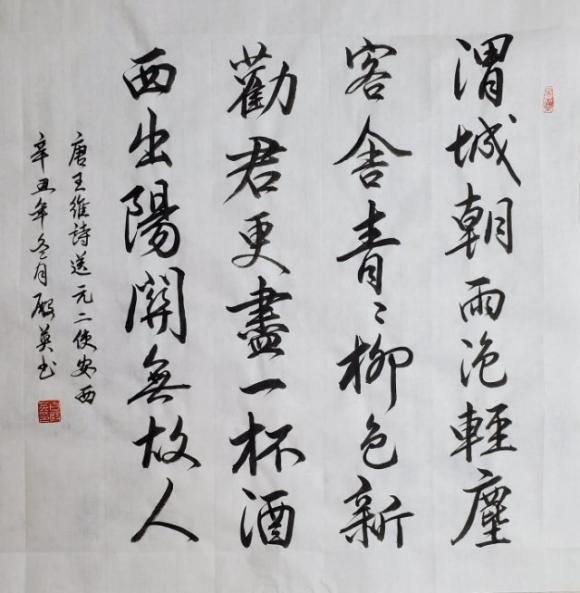 渭城朝雨浥輕塵
客舍青青柳色新
勸君更盡一杯酒
西出陽關無故人
唐王維詩送元二使安西
辛丑年冬月殿英书